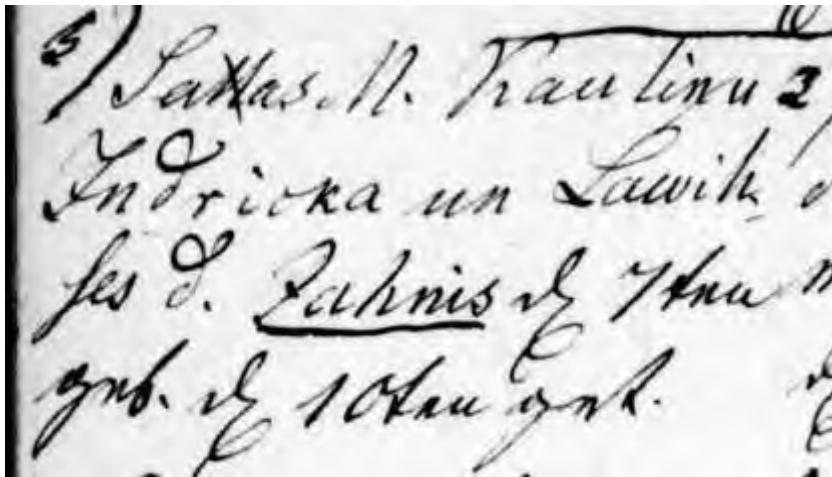 5) Sattas. M. Kaulinu 2
Indricka un Lawih-
ses d. Jahnis d. 7ten
geb. d. 10ten get.